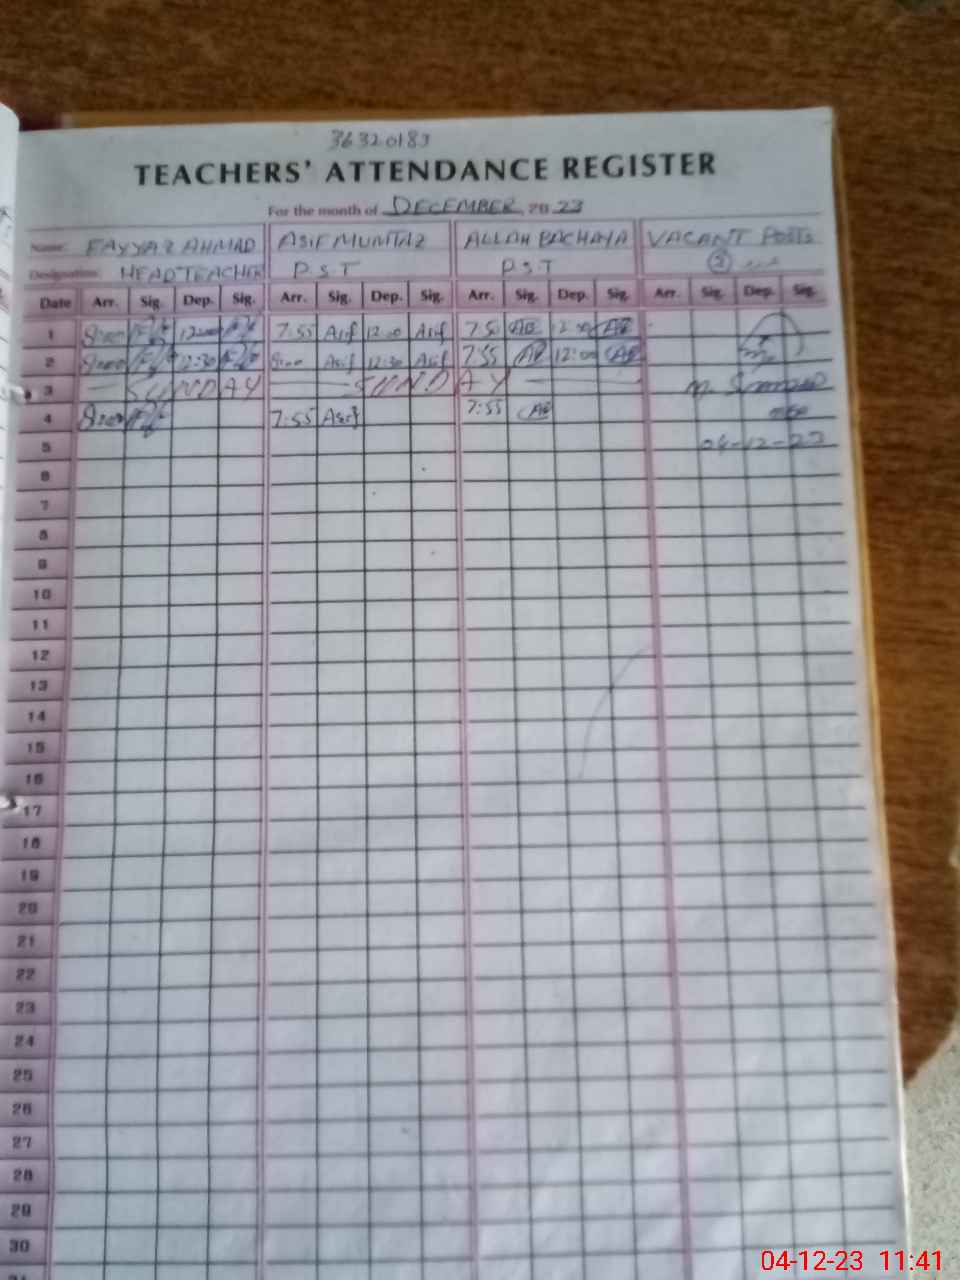 36320183
TEACHERS' ATTENDANCE REGISTER
For the month of DECEMBER, 20 23
Name: FAYYAZ AHMAD ASIF MUMTAZ ALLAH BACHAYA VACANT POSTS
Designation: HEADTEACHER P.S.T P.S.T 2
Date Arr. Sig. Dep. Sig. Arr. Sig. Dep. Sig. Arr. Sig. Dep. Sig. Arr. Sig. Dep. Sig.
1 12:00 7:55 Asif 12:00 Asif 7:50 AB 12:00 AB
2 12:30 Asif 12:30 Asif 7:55 AB 12:00 AB
3 SUNDAY SUNDAY
4 7:55 Asif 7:55 AB
5 04-12-23
6
7
8
9
10
11
12
13
14
15
16
17
18
19
20
21
22
23
24
25
26
27
28
29
30
04-12-23 11:41